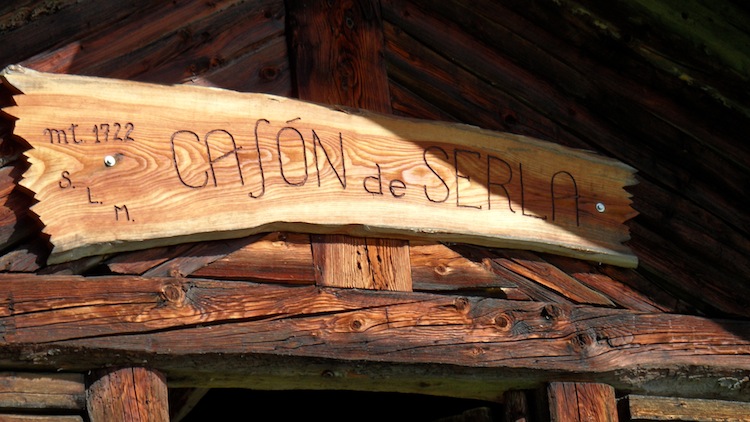 mt. 1722
S. L. M.
CAʃÓN de SERLA